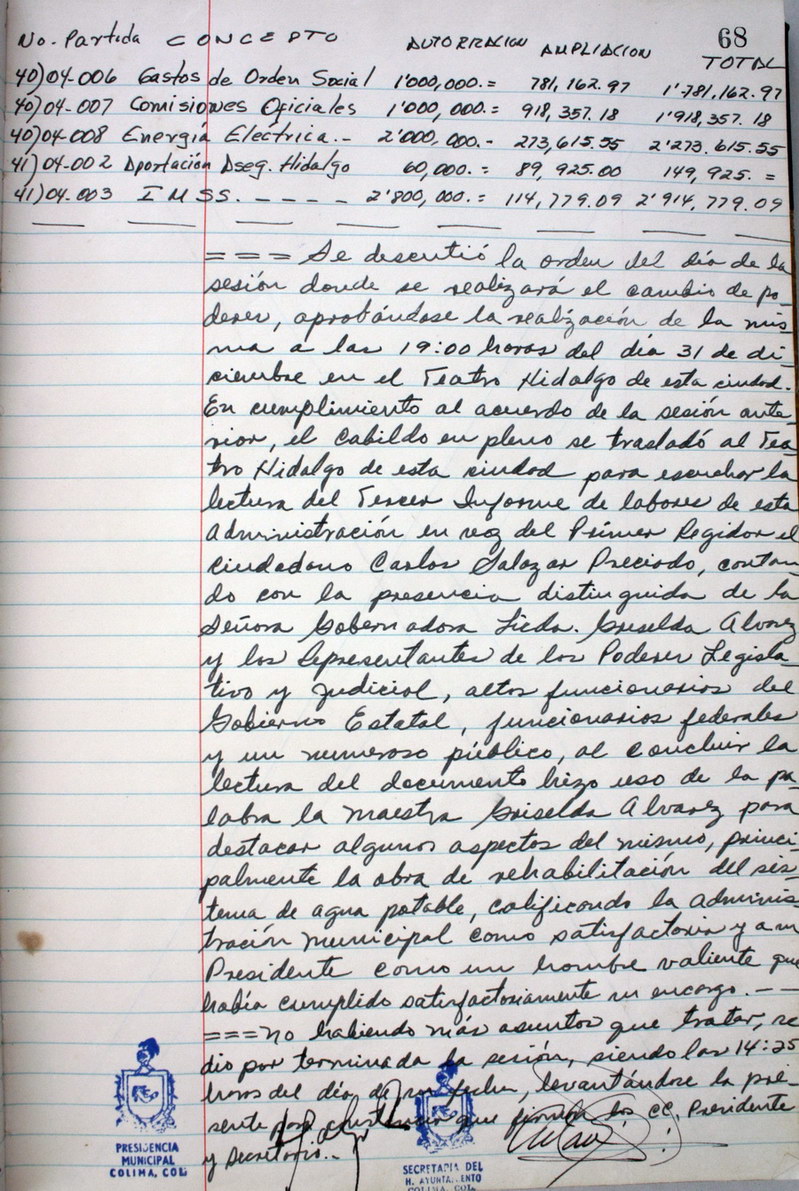 68
No. Partida CONCEPTO AUTORIZACION AMPLIACION TOTAL
40)04-006 Gastos de Orden Social 1'000,000.= 781,162.97 1'781,162.97
40)04-007 Comisiones Oficiales 1'000,000.= 918,357.18 1'918,357.18
40)04-008 Energía Electrica.- 2'000,000.- 273,615.55 2'273.615.55
41)04-002 Aportación Aseg. Hidalgo 60,000.= 89,925.00 149,925.=
41)04-003 IMSS. - - - - - 2'800,000.= 114,779.09 2'914,779.09
=== Se descutió la orden del día de la
sesión donde se realizará el cambio de po-
deres, aprobándose la realización de la mis-
ma a las 19:00 horas del día 31 de di-
ciembre en el Teatro Hidalgo de esta ciudad.
En cumplimiento al acuerdo de la sesión ante-
rior, el Cabildo en pleno se trasladó al Tea-
tro Hidalgo de esta ciudad para escuchar la
lectura del Tercer Informe de labores de esta
administración en voz del Primer Regidor el
ciudadano Carlos Salazar Preciado, contan-
do con la presencia distinguida de la
Señora Gobernadora Licda. Griselda Alvarez
y los Representantes de los Poderes Legisla-
tivo y Judicial, altos funcionarios del
Gobierno Estatal, funcionarios federales
y un numeroso público, al concluir la
lectura del documento hizo uso de la pa-
labra la maestra Griselda Alvarez para
destacar algunos aspectos del mismo, princi-
palmente la obra de rehabilitación del sis-
tema de agua potable, calificando la adminis-
tración municipal como satisfactoria y a su
Presidente como un hombre valiente que
había cumplido satisfactoriamente su encargo. - -
=== No habiendo más asuntos que tratar, se
dio por terminada la sesión, siendo las 14:25
horas del día de su fecha, levantándose la pre-
sente para constancia que firman los CC. Presidente
y Secretario.-
PRESIDENCIA
MUNICIPAL
COLIMA, COL.
SECRETARIA DEL
H. AYUNTAMIENTO
COLIMA, COL.